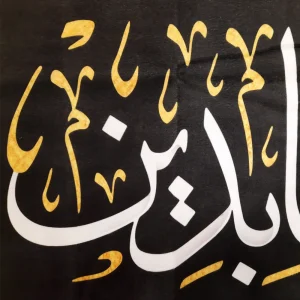 ابِدِين